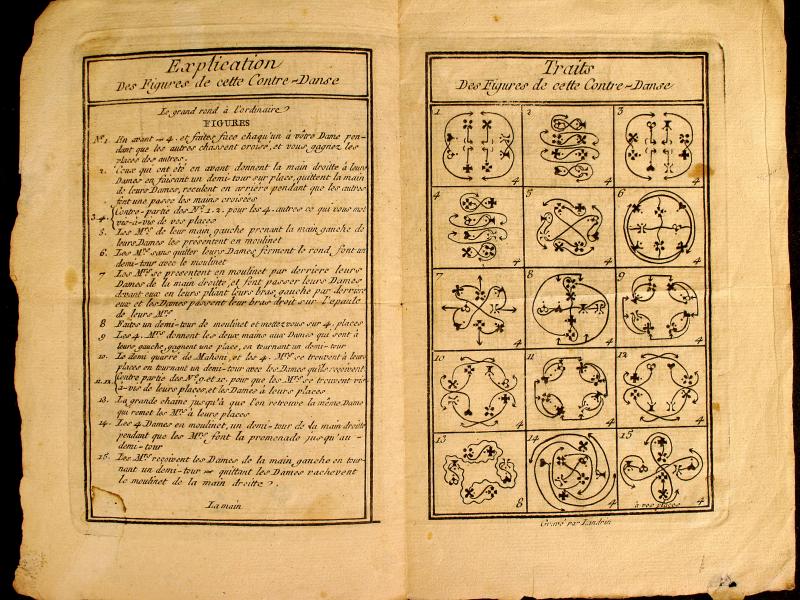 Explication
Des Figures de cette Contre-Danse
Le grand rond à l'ordinaire
FIGURES
N.º 1. En avant 4. et faites face chaqu'un à vôtre Dame pen-
dant que les autres chassent croisé, et vous gagnez les
places des autres.
2. Ceux qui ont été en avant donnent la main droitte à leurs
Dames en faisant un demi-tour sur place, quittent la main
de leurs Dames, reculent en arriere pendant que les autres
font une passe les mains croisées
3.4. Contre-partie des N.os 1.2. pour les 4. autres ce qui vous met
vis-à-vis de vos places
5. Les M.rs de leur main gauche prenant la main gauche de
leurs Dames les presentent en moulinet
6. Les M.rs sans quitter leurs Dames forment le rond, font un
demi-tour avec le moulinet
7. Les M.rs se presentent en moulinet par derriere leurs
Dames de la main droitte, et font passer leurs Dames
devant eux en leurs pliant leurs bras gauche par derriere
eux et les Dames passent leur bras droit sur l'epaule
de leurs M.rs
8 Faites un demi-tour de moulinet et mettez vous sur 4. places
9 Les 4. M.rs donnent les deux mains aux Dames qui sont à
leurs gauche, gagnent une place, en tournant un demi-tour
10. Le demi quarré de Mahoni, et les 4. M.rs se trouvent à leurs
places en tournant un demi-tour avec les Dames qu'ils reçoivent
11.12. Contre partie des N.os 9. et 10. pour que les M.rs se trouvent vis-
à-vis de leurs places, et les Dames à leurs places
13. La grande chaine jusqu'à que l'on retrouve la même Dame
qui remet les M.rs à leurs places
14. Les 4 Dames en moulinet, un demi-tour de la main droitte
pendant que les M.rs font la promenade jusqu'au -
demi-tour
15. Les M.rs reçoivent les Dames de la main gauche en tour-
nant un demi-tour quittant les Dames rachevent
le moulinet de la main droitte.
La main
Traits
Des Figures de cette Contre-Danse
1 2 3
4 4 4
4 5 6
4 4 4
7 8 9
4 4 4
10 11 12
4 4 4
13 14 15
8 4 4
à vos places
Gravé par Landrin